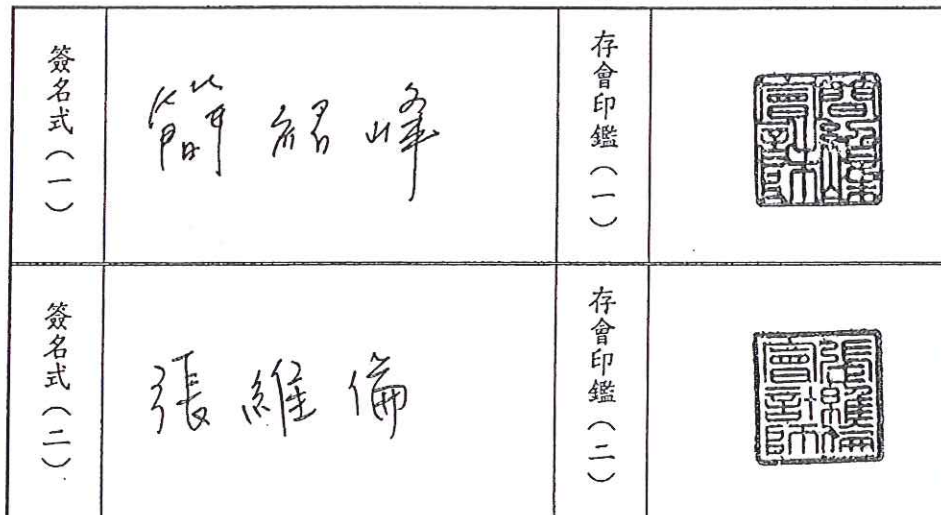 簽名式（一）
簡 紹 峰
存會印鑑（一）
簡紹峰
會計師
簽名式（二）
張 維 倫
存會印鑑（二）
張維倫
會計師